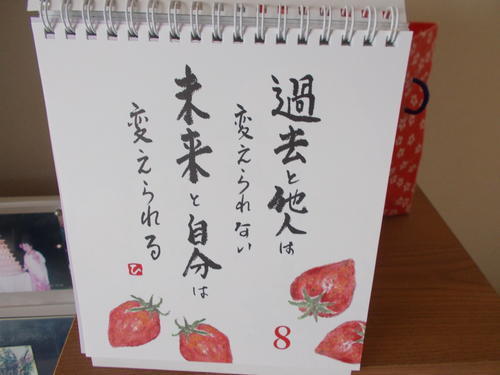 過去と他人は
変えられない
未来と自分は
変えられる
ひ
8